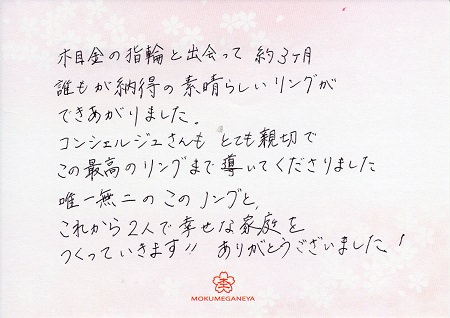 木目金の指輪と出会って 約3ヶ月
誰もが納得の素晴らしいリングが
できあがりました。
コンシェルジュさんも とても親切で
この最高のリングまで導いてくださりました
唯一無二の このリングと、
これから2人で幸せな家庭を
つくっていきます!! ありがとうございました!
MOKUMEGANEYA